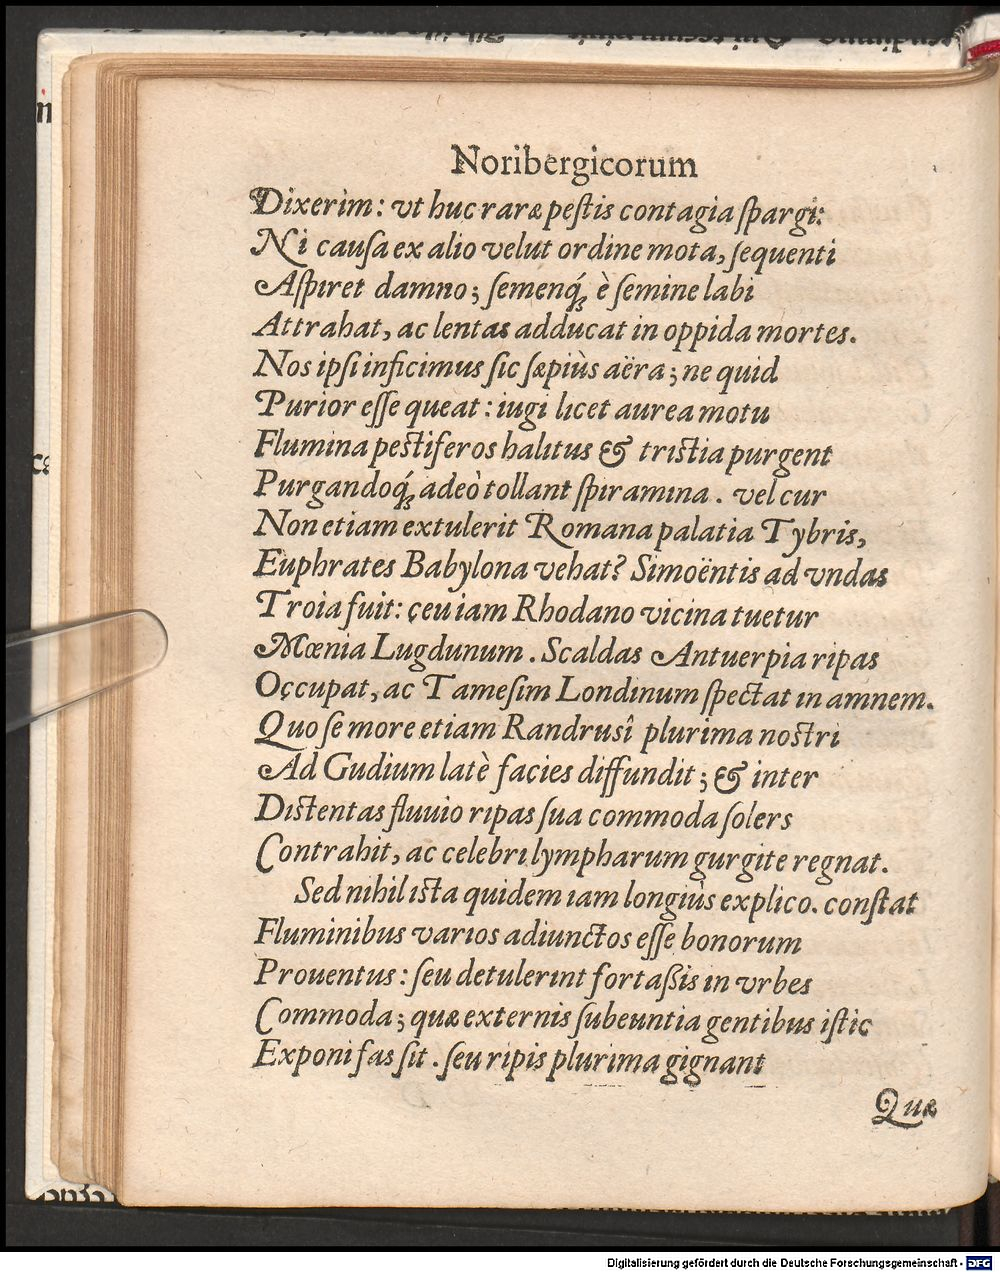 Noribergicorum
Dixerim: vt huc raræ peſtis contagia ſpargi:
Ni cauſa ex alio velut ordine mota, ſequenti
Aſpiret damno; ſemenq́ꝫ è ſemine labi
Attrahat, ac lentas adducat in oppida mortes.
Nos ipſi inficimus ſic ſæpiùs aëra; ne quid
Purior eſſe queat: iugi licet aurea motu
Flumina peſtiferos halitus & triſtia purgent
Purgandoq́ꝫ adeò tollant ſpiramina. vel cur
Non etiam extulerit Romana palatia Tybris,
Euphrates Babylona vehat? Simoëntis ad vndas
Troia fuit: çeu iam Rhodano vicina tuetur
Mœnia Lugdunum. Scaldas Antuerpia ripas
Oçcupat, ac Tameſim Londinum ſpectat in amnem.
Quo ſe more etiam Randrusî plurima noſtri
Ad Gudium latè facies diffundit; & inter
Diſtentas fluuio ripas ſua commoda ſolers
Contrahit, ac celebri lympharum gurgite regnat.
Sed nihil iſta quidem iam longiùs explico. conſtat
Fluminibus varios adiunctos eſſe bonorum
Prouentus: ſeu detulerint fortaßis in vrbes
Commoda; quæ externis ſubeuntia gentibus iſtic
Exponi fas ſit. ſeu ripis plurima gignant
Quæ
Digitalisierung gefördert durch die Deutsche Forschungsgemeinschaft - DFG